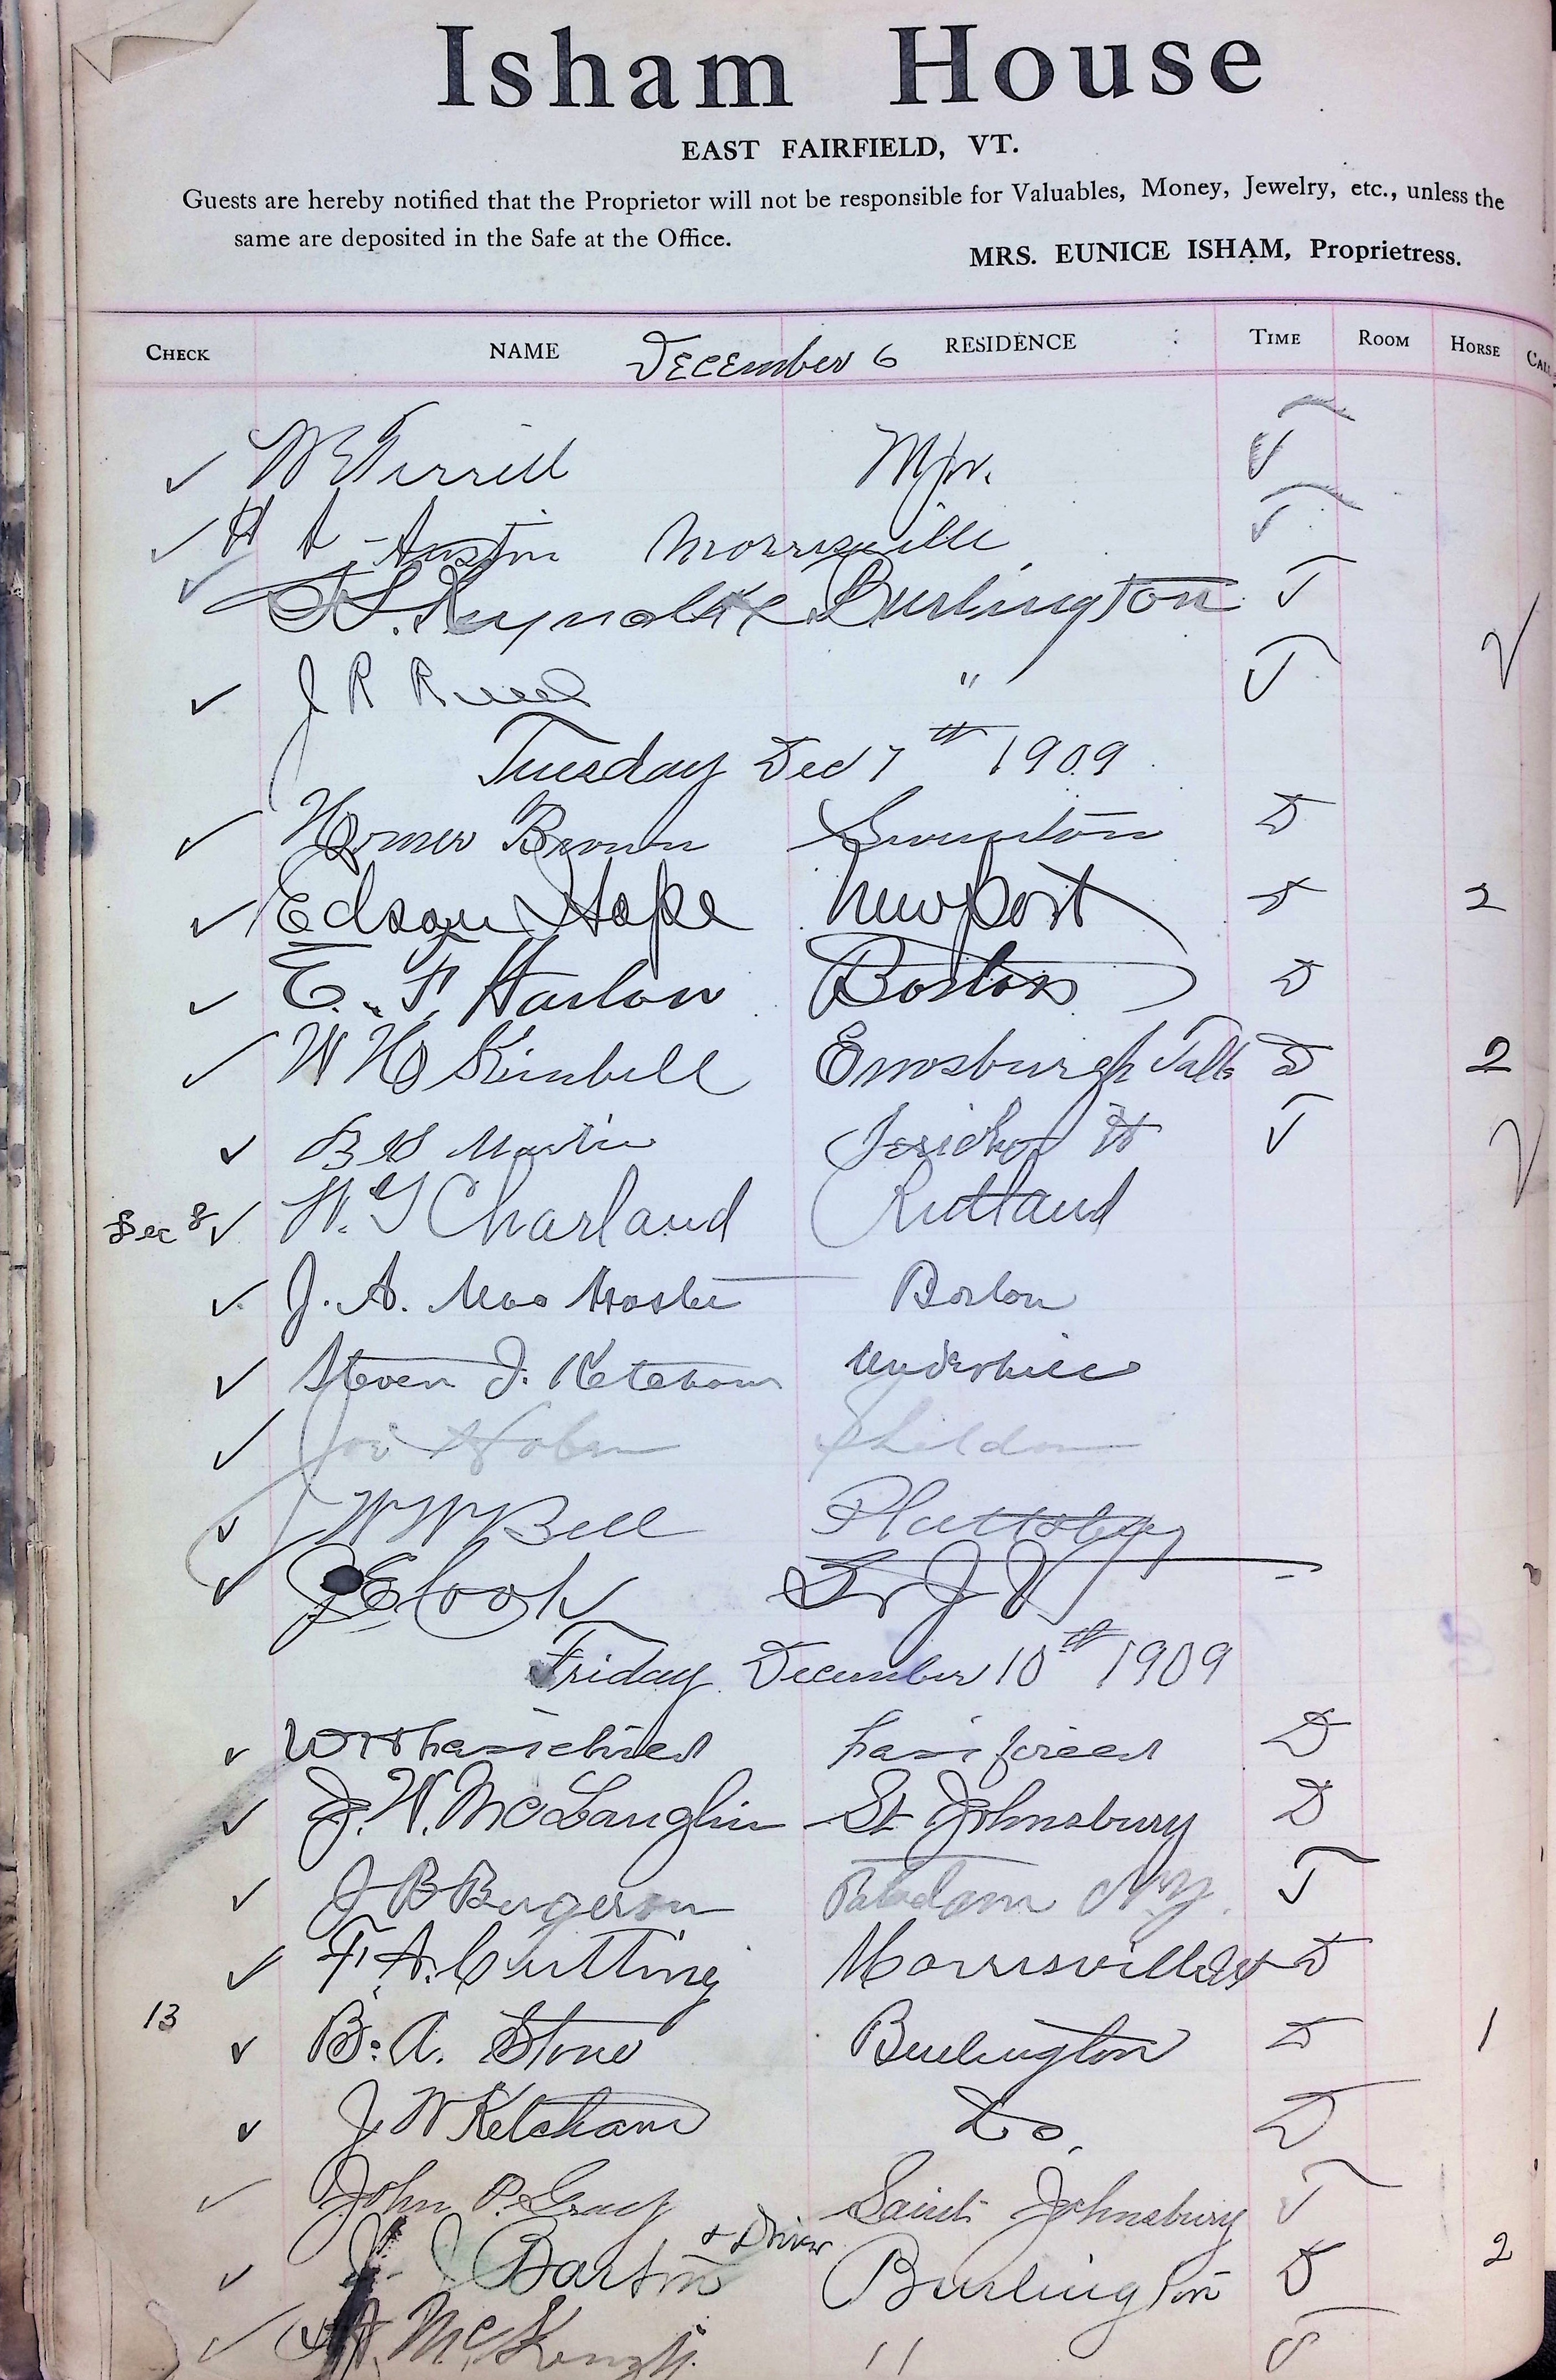 Isham House
EAST FAIRFIELD, VT.
Guests are hereby notified that the Proprietor will not be responsible for Valuables, Money, Jewelry, etc., unless the
same are deposited in the Safe at the Office.
MRS. EUNICE ISHAM, Proprietress.
CHECK NAME RESIDENCE TIME ROOM HORSE
December 6
✓ W E Terrill Mpr.
✓ H A - Austin Morrisville
✓ Reynolds Burlington T
✓ J R "  T
Tuesday Dec 7th 1909
✓ Homer Brown Swanton D
✓ Edson Hope Newport 2
✓ E. F. Harlow Boston D
✓ W H Kimbell Enosburgh Falls D 2
✓ B S Martin Jericho Vt
Dec 8 ✓ W. G Charland Rutland
✓ J. A. Boston
✓ Steven J. Ketcham Underhill
✓ Joe Sheldon
✓ W W Bell Plattsburg
✓ J E Cook
Friday December 10th 1909
✓ W H Fairchild Fairfield D
✓ J. W. McLaughlin St Johnsbury D
✓ J B Bergeron N.Y. T
✓ F. A. Cutting Morrisville Vt D
13 ✓ B. A. Stone Burlington D 1
✓ J W Ketcham Do. D
✓ John P. Gracy Saint Johnsbury T
✓ J Barton + Driver Burlington D 2
✓ "